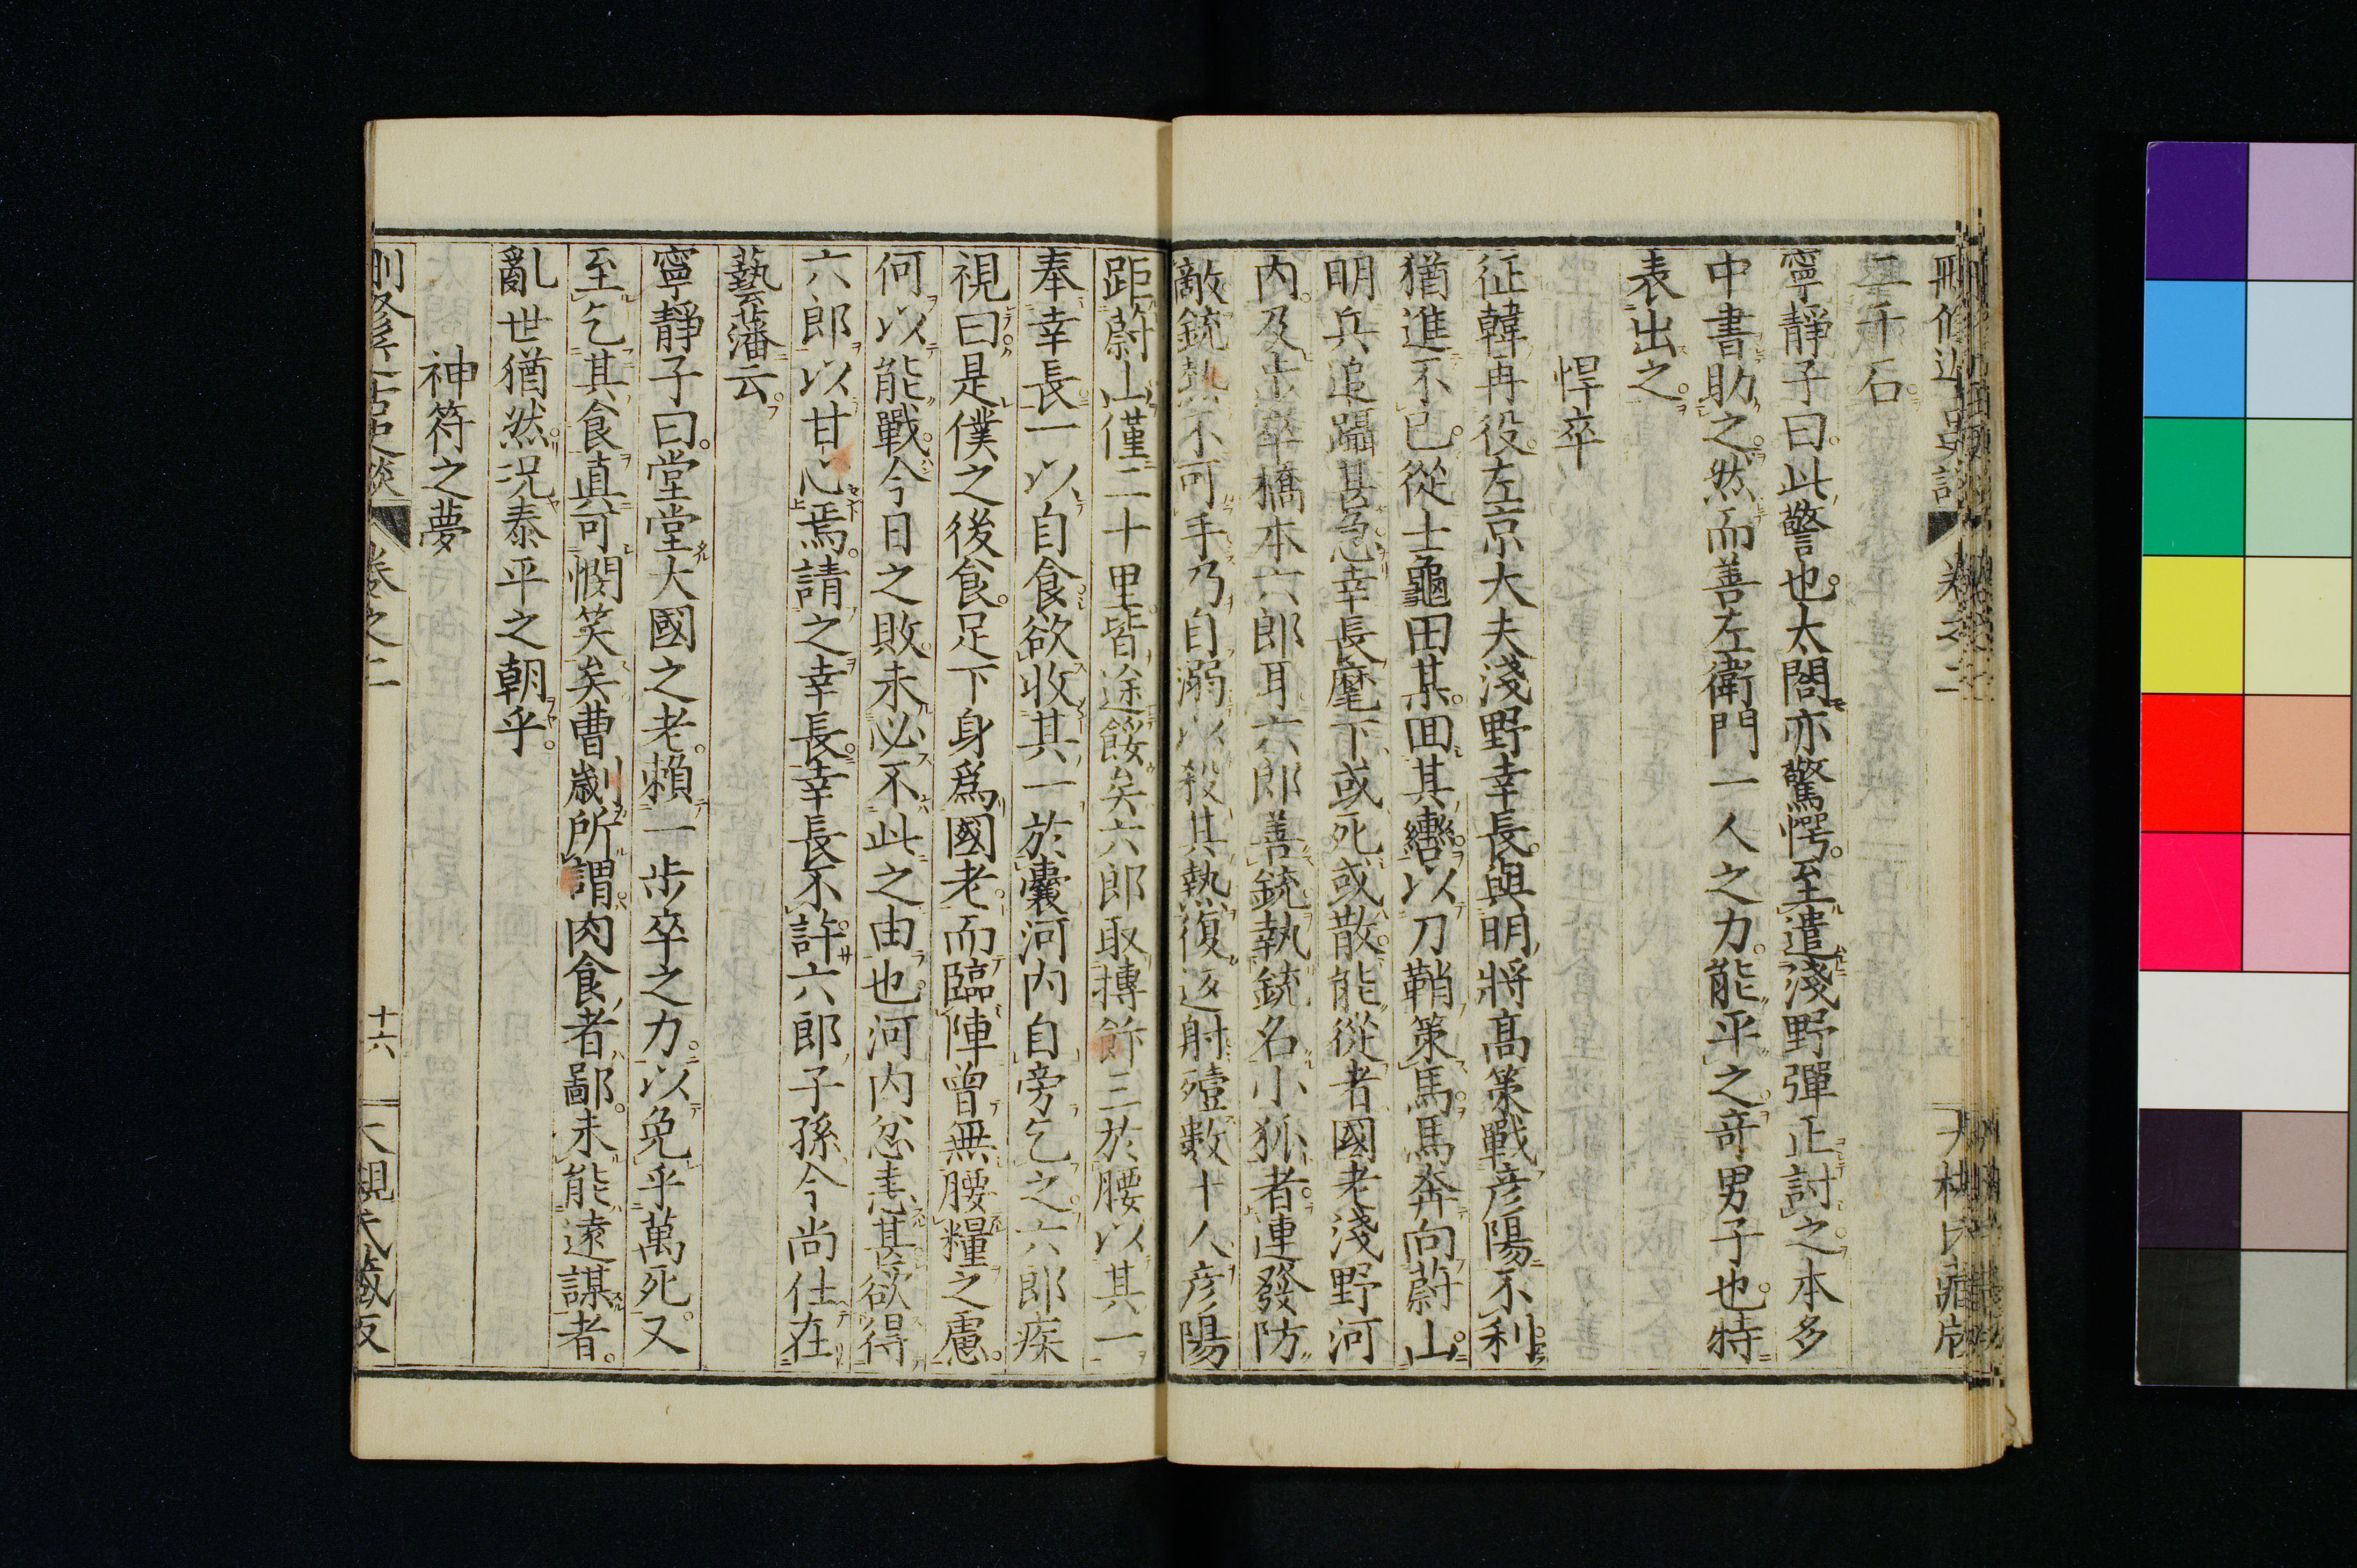 刪修近古史談 卷之二 十五 大槻氏藏版
二千石
寧靜子曰此警也太閤亦驚愕至遣淺野彈正討之本多
中書助之然而善左衛門一人之力能平之奇男子也特
表出之
悍卒
征韓再役左京大夫淺野幸長與明將高策戰彥陽不利
猶進不已從士龜田某回其轡以刀鞘策馬馬奔向蔚山
明兵追躡甚急幸長麾下或死或散能從者國老淺野河
內及步卒橋本六郎耳六郎善銃執銃名小狐者連發防
敵銃熱不可手乃自溺以殺其熱復返射殪數十人彥陽
距蔚山僅二十里皆途餒矣六郎取摶飯三於腰以其一
奉幸長一以自食欲收其一於囊河內自旁乞之六郎疾
視曰是僕之後食足下身爲國老而臨陣曾無腰糧之慮
何以能戰今日之敗未必不此之由也河內忿恚甚欲得
六郎以甘心焉請之幸長幸長不許六郎子孫今尚仕在
藝藩云
寧靜子曰堂堂大國之老賴一步卒之力以免乎萬死又
至乞其食真可憫笑矣曹劌所謂肉食者鄙未能遠謀者
亂世猶然況泰平之朝乎
神符之夢
刪修近古史談 卷之二 十六 大槻氏藏版